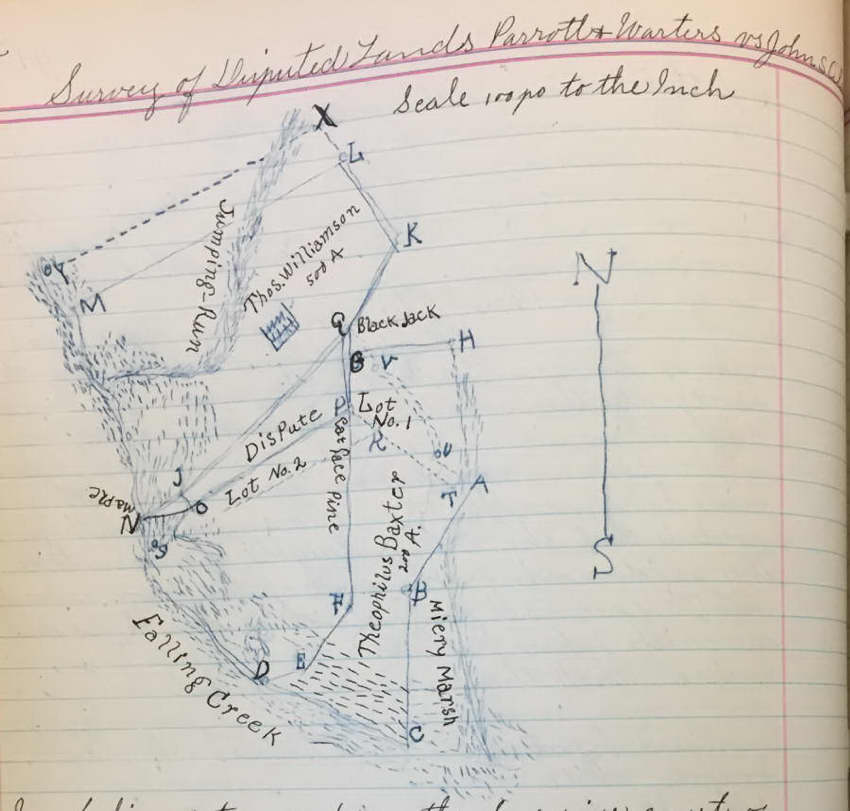 Survey of Disputed Lands Parrott & Warters vs Johns
Scale 100 po to the Inch
X
L
K
Jumping-Run
Thos. Williamson
500 A
Y
M
N
G
Black Jack
H
V
Lot
No. 1
P
R
Dispute
Lot No. 2
J
O
maple
N
Lat face Pine
U
A
T
Theophilus Baxter
200 A.
B
F
Miery Marsh
E
D
Falling Creek
C
S